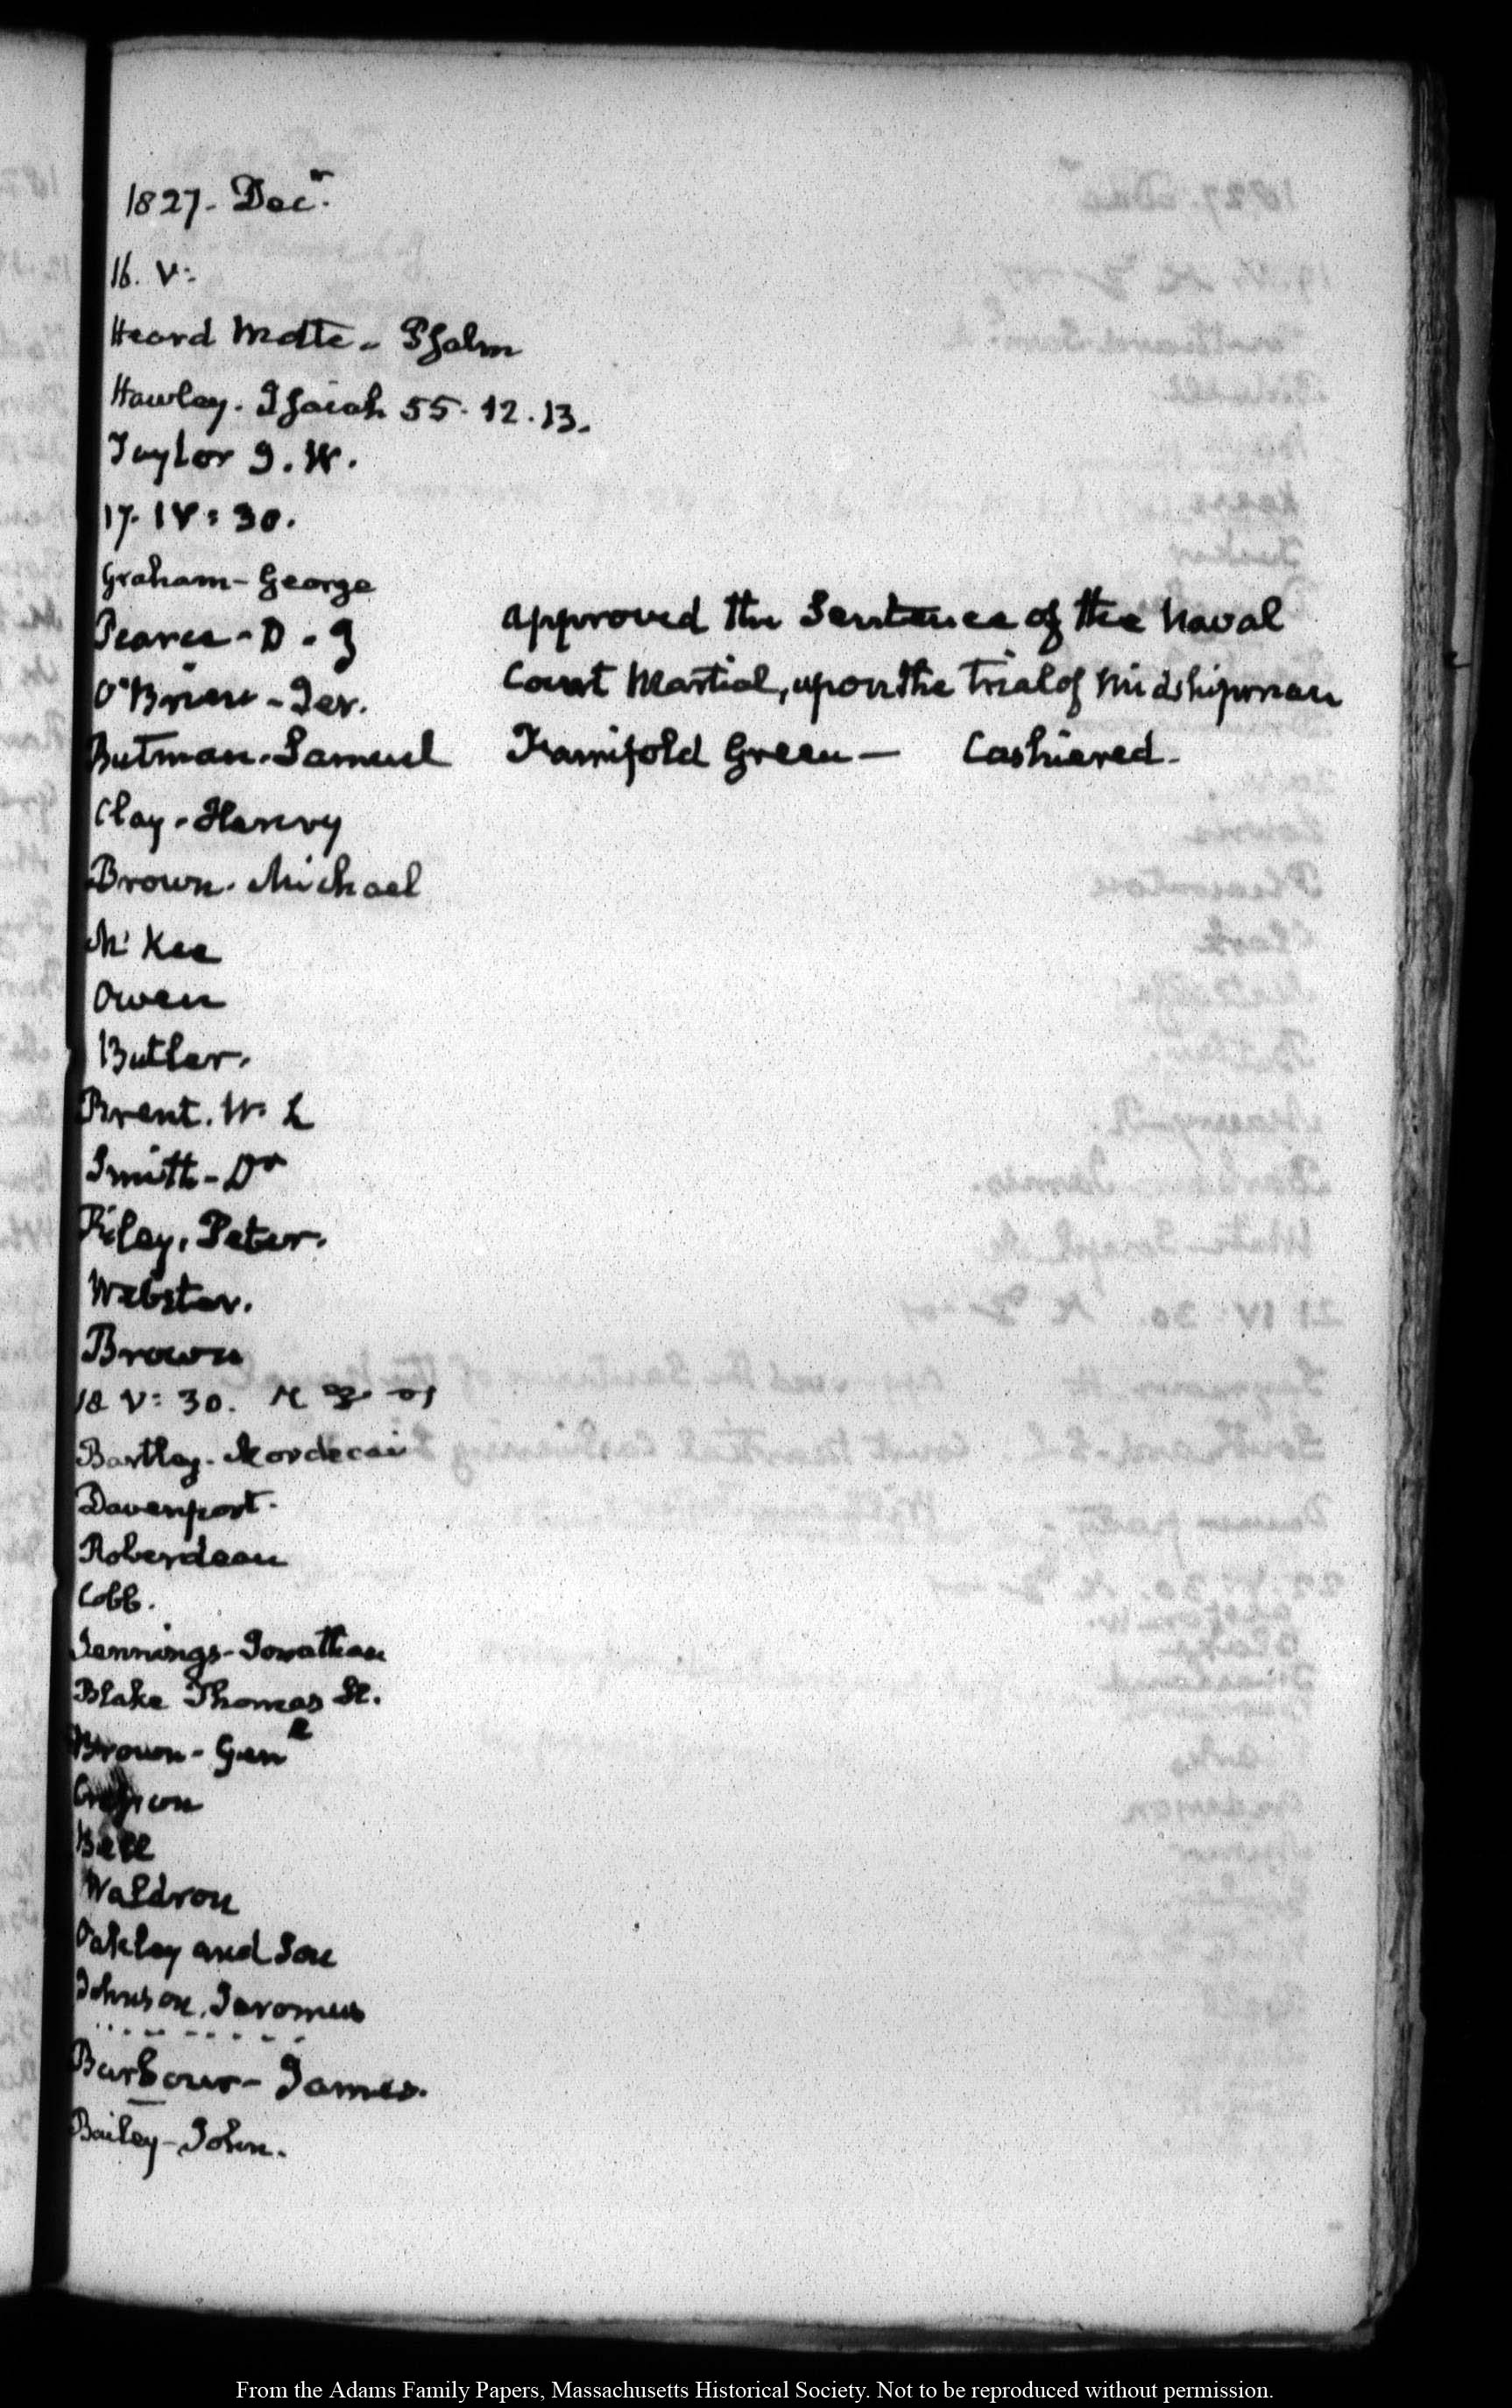 1827. Decr.
16. V:
Heard Matte. Psalm
Hawley. Isaiah 55. 12. 13.
Taylor J. W.
17. IV: 30.
Graham - George
Pearce - D. J
approved the Sentence of the Naval
O'Brien - Jer.
Court Martial, upon the trial of Midshipman
Butman. Samuel
Green — Cashiered.
Clay. Henry
Brown. Michael
McKee
Owen
Butler.
Brent. W. L
Smith - Dr
Riley, Peter.
Webster.
Brown
18 V: 30.
Bartley. Mordecai
Davenport.
Roberdeau
Cobb.
Jennings - Jonathan
Blake Thomas H.
Brown - Genl
Bell
Waldron
Oakley and Son
Johnson. Jeromus
Barbour - James.
Bailey - John.
From the Adams Family Papers, Massachusetts Historical Society. Not to be reproduced without permission.